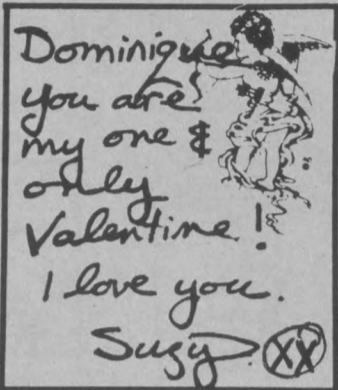 Dominique
you are
my one &
only
Valentine!
I love you.
Suzy XX